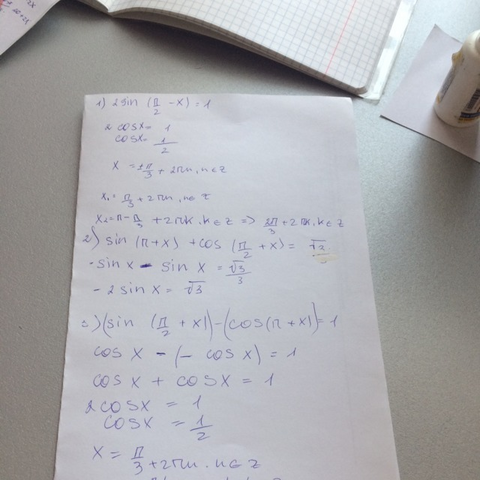 1) 2 sin (π/2 - x) = 1
2 cosx = 1
cosx = 1/2
x = ±π/3 + 2πn, n∈z
x₁ = π/3 + 2πn, n∈z
x₂ = π - π/3 + 2πk, k∈z => 2π/3 + 2πk, k∈z
2) sin (π+x) + cos (π/2 + x) = √3
- sin x - sin x = √3/3
- 2 sin x = √3
3) (sin (π/2 + x)) - (cos(π + x)) = 1
cos x - (- cos x) = 1
cos x + cos x = 1
2 cosx = 1
cosx = 1/2
x = π/3 + 2πn, n∈z